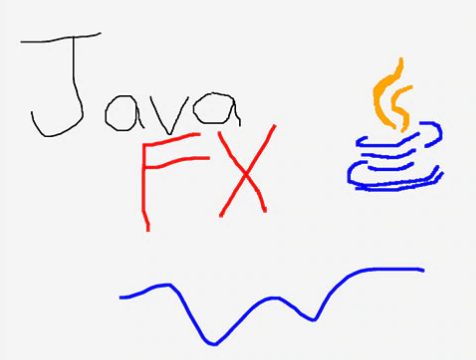 Java
FX